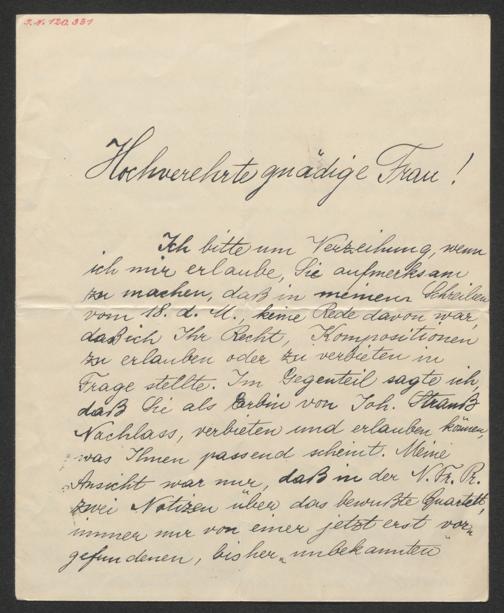 I.N. 120.331
Hochverehrte gnädige Frau!
Ich bitte um Verzeihung, wenn
ich mir erlaube, Sie aufmerksam
zu machen, daß in meinem Schreiben
vom 18. d. M., keine Rede davon war,
daß ich Ihr Recht, Kompositionen
zu erlauben oder zu verbieten in
Frage stellte. Im Gegenteil sagte ich,
daß Sie als Erbin von Joh. Strauß
Nachlass, verbieten und erlauben können,
was Ihnen passend scheint. Meine
Ansicht war nur, daß in der N. Fr. Pr.
zwei Notizen über das bewußte Quartett,
immer nur von einer jetzt erst vor„
gefundenen, bisher „unbekannten"